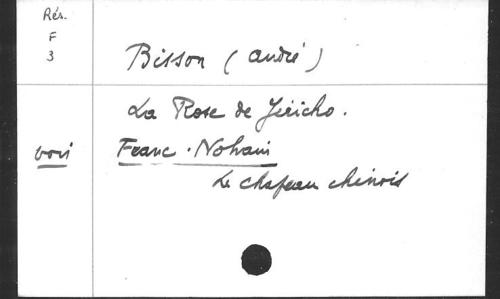 Rés.
F
3
Bisson (André)
La Rose de Jéricho.
voir Franc-Nohain
Le chapeau chinois